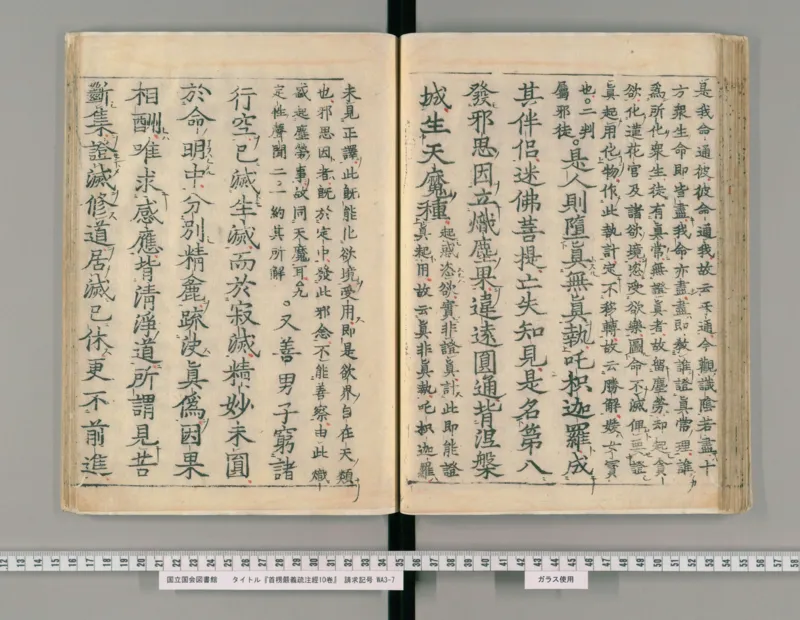 是我命通彼彼命通我故云互通今觀識陰若盡十
方衆生命即皆盡我命亦盡盡即教誰證真常理誰
為所化衆生徒有真常無證真者故留塵勞却起貪
欲化造花宮及諸欲境恣受欲樂圖命不滅俾無證
真起用化物作此執計定不移轉故云勝解
也。二判
屬邪徒。是人則墮真無真執吒枳迦羅成
其伴侶迷佛菩提亡失知見是名第八
發邪思因立熾塵果違遠圓通背涅槃
城生天魔種起熾恣欲實非證真計此即能證
真起用故云真非真執吒枳迦羅
未見正譯此既能化欲境受用即是欲界自在天類
也邪思因者既於定中發此邪念不能善察由此熾
盛起塵勞事故同天魔耳九
定性聲聞二。一約其所解。又善男子窮諸
行空已滅生滅而於寂滅精妙未圓
於命明中分別精麁疏决真偽因果
相酬唯求感應背清淨道所謂見苦
斷集證滅修道居滅已休更不前進
国立国会図書館 タイトル『首楞嚴義疏注經10巻』 請求記号 WA3-7
ガラス使用